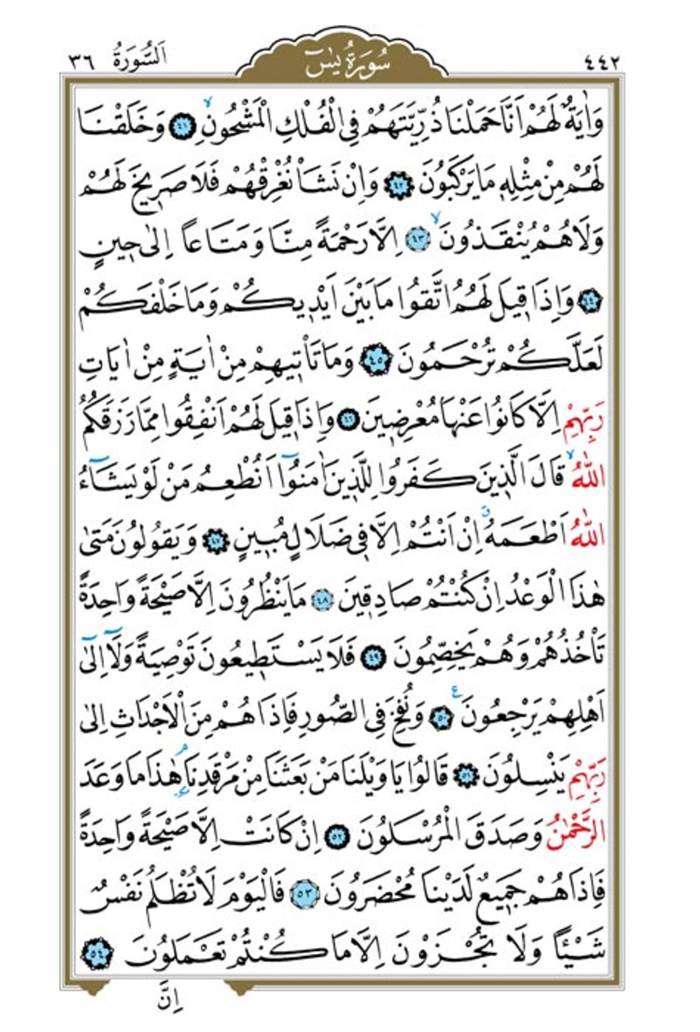 ٤٤٢ سُورَةُ يٰسٓ اَلسُّورَةُ ٣٦
وَاٰيَةٌ لَهُمْ اَنَّا حَمَلْنَا ذُرِّيَّتَهُمْ فِي الْفُلْكِ الْمَشْحُونِۙ ﴿٤١﴾ وَخَلَقْنَا
لَهُمْ مِنْ مِثْلِهٖ مَا يَرْكَبُونَ ﴿٤٢﴾ وَاِنْ نَشَأْ نُغْرِقْهُمْ فَلَا صَرٖيخَ لَهُمْ
وَلَا هُمْ يُنْقَذُونَۙ ﴿٤٣﴾ اِلَّا رَحْمَةً مِنَّا وَمَتَاعاً اِلٰى حٖينٍ
﴿٤٤﴾ وَاِذَا قٖيلَ لَهُمُ اتَّقُوا مَا بَيْنَ اَيْدٖيكُمْ وَمَا خَلْفَكُمْ
لَعَلَّكُمْ تُرْحَمُونَ ﴿٤٥﴾ وَمَا تَأْتٖيهِمْ مِنْ اٰيَةٍ مِنْ اٰيَاتِ
رَبِّهِمْ اِلَّا كَانُوا عَنْهَا مُعْرِضٖينَ ﴿٤٦﴾ وَاِذَا قٖيلَ لَهُمْ اَنْفِقُوا مِمَّا رَزَقَكُمُ
اللّٰهُۙ قَالَ الَّذٖينَ كَفَرُوا لِلَّذٖينَ اٰمَنُٓوا اَنُطْعِمُ مَنْ لَوْ يَشَٓاءُ
اللّٰهُ اَطْعَمَهُۗ اِنْ اَنْتُمْ اِلَّا فٖي ضَلَالٍ مُبٖينٍ ﴿٤٧﴾ وَيَقُولُونَ مَتٰى
هٰذَا الْوَعْدُ اِنْ كُنْتُمْ صَادِقٖينَ ﴿٤٨﴾ مَا يَنْظُرُونَ اِلَّا صَيْحَةً وَاحِدَةً
تَأْخُذُهُمْ وَهُمْ يَخِصِّمُونَ ﴿٤٩﴾ فَلَا يَسْتَطٖيعُونَ تَوْصِيَةً وَلَٓا اِلٰٓى
اَهْلِهِمْ يَرْجِعُونَࣖ ﴿٥٠﴾ وَنُفِخَ فِي الصُّورِ فَاِذَا هُمْ مِنَ الْاَجْدَاثِ اِلٰى
رَبِّهِمْ يَنْسِلُونَ ﴿٥١﴾ قَالُوا يَا وَيْلَنَا مَنْ بَعَثَنَا مِنْ مَرْقَدِنَاۢ هٰذَا مَا وَعَدَ
الرَّحْمٰنُ وَصَدَقَ الْمُرْسَلُونَ ﴿٥٢﴾ اِنْ كَانَتْ اِلَّا صَيْحَةً وَاحِدَةً
فَاِذَا هُمْ جَمٖيعٌ لَدَيْنَا مُحْضَرُونَ ﴿٥٣﴾ فَالْيَوْمَ لَا تُظْلَمُ نَفْسٌ
شَيْـٔاً وَلَا تُجْزَوْنَ اِلَّا مَا كُنْتُمْ تَعْمَلُونَ ﴿٥٤﴾
اِنَّ